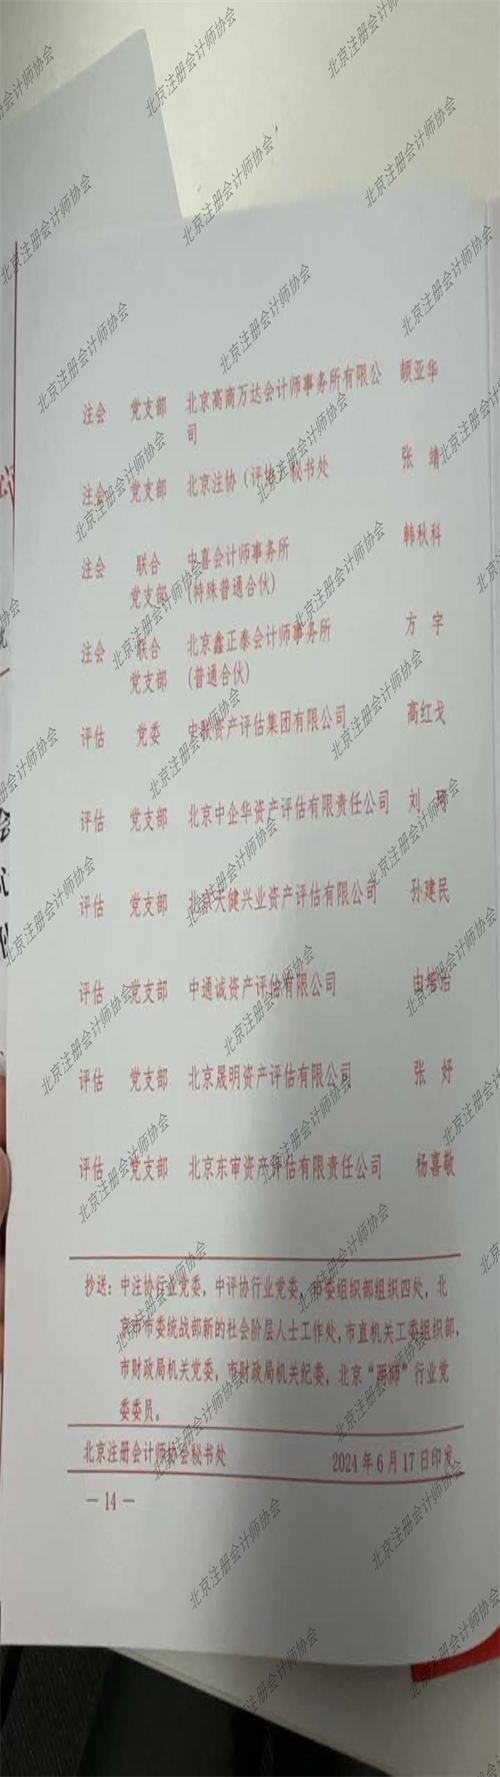 注会 党支部 北京高商万达会计师事务所有限公 顾亚华
司
注会 党支部 北京注协（评协）秘书处 张 靖
注会 联合 中喜会计师事务所 韩秋科
党支部 (特殊普通合伙)
注会 联合 北京鑫正泰会计师事务所 方 宇
党支部 (普通合伙)
评估 党委 资产评估集团有限公司 高红戈
评估 党支部 北京中企华资产评估有限责任公司 刘
评估 党支部 北京天健兴业资产评估有限公司 孙建民
评估 党支部 中通诚资产评估有限公司
评估 党支部 北京晟明资产评估有限公司 张 妤
评估 党支部 北京东审资产评估有限责任公司 杨喜敏
抄送：中注协行业党委，中评协行业党委，市委组织部组织四处，北
京市市委统战部新的社会阶层人士工作处，市直机关工委组织部，
市财政局机关党委，市财政局机关纪委，北京“两师”行业党
委委员。
北京注册会计师协会秘书处 2024年6月17日印发
— 14 —
北京注册会计师协会